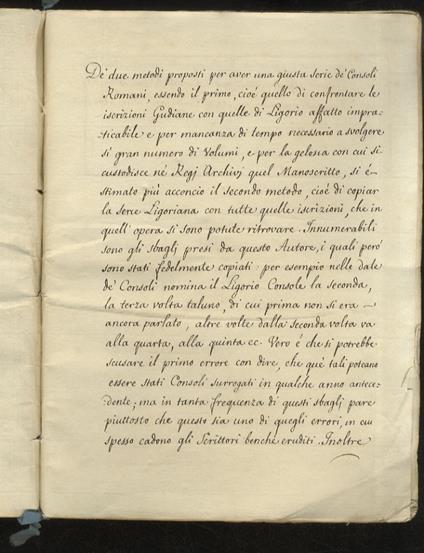 De' due metodi proposti per aver una giusta serie de' Consoli
Romani, essendo il primo, cioé quello di confrontare le
iscrizioni Gudiane con quelle di Ligorio affatto impra:
ticabile e per mancanza di tempo necessario a svolgere
si gran numero di Volumi, e per la gelosia con cui si
custodisce ne' Regj Archivj quel Manoscritto, si é
stimato più acconcio il secondo metodo, cioé di copiar
la serie Ligoriana con tutte quelle iscrizioni, che in
quell' opera si sono potute ritrovare. Innumerabili
sono gli sbaglj presi da questo Autore, i quali peró
sono stati fedelmente copiati: per esempio nelle date
de' Consoli nomina il Ligorio Console la seconda,
la terza volta taluno, di cui prima non si era
ancora parlato, altre volte dalla seconda volta va
alla quarta, alla quinta ec. Vero é che si potrebbe
scusare il primo errore con dire, che que' tali poteano
essere stati Consoli surrogati in qualche anno antece:
:dente; ma in tanta frequenza di questi sbaglj pare
piuttosto che questo sia uno di quegli errori, in cui
spesso cadono gli Scrittori benché eruditi. Inoltre